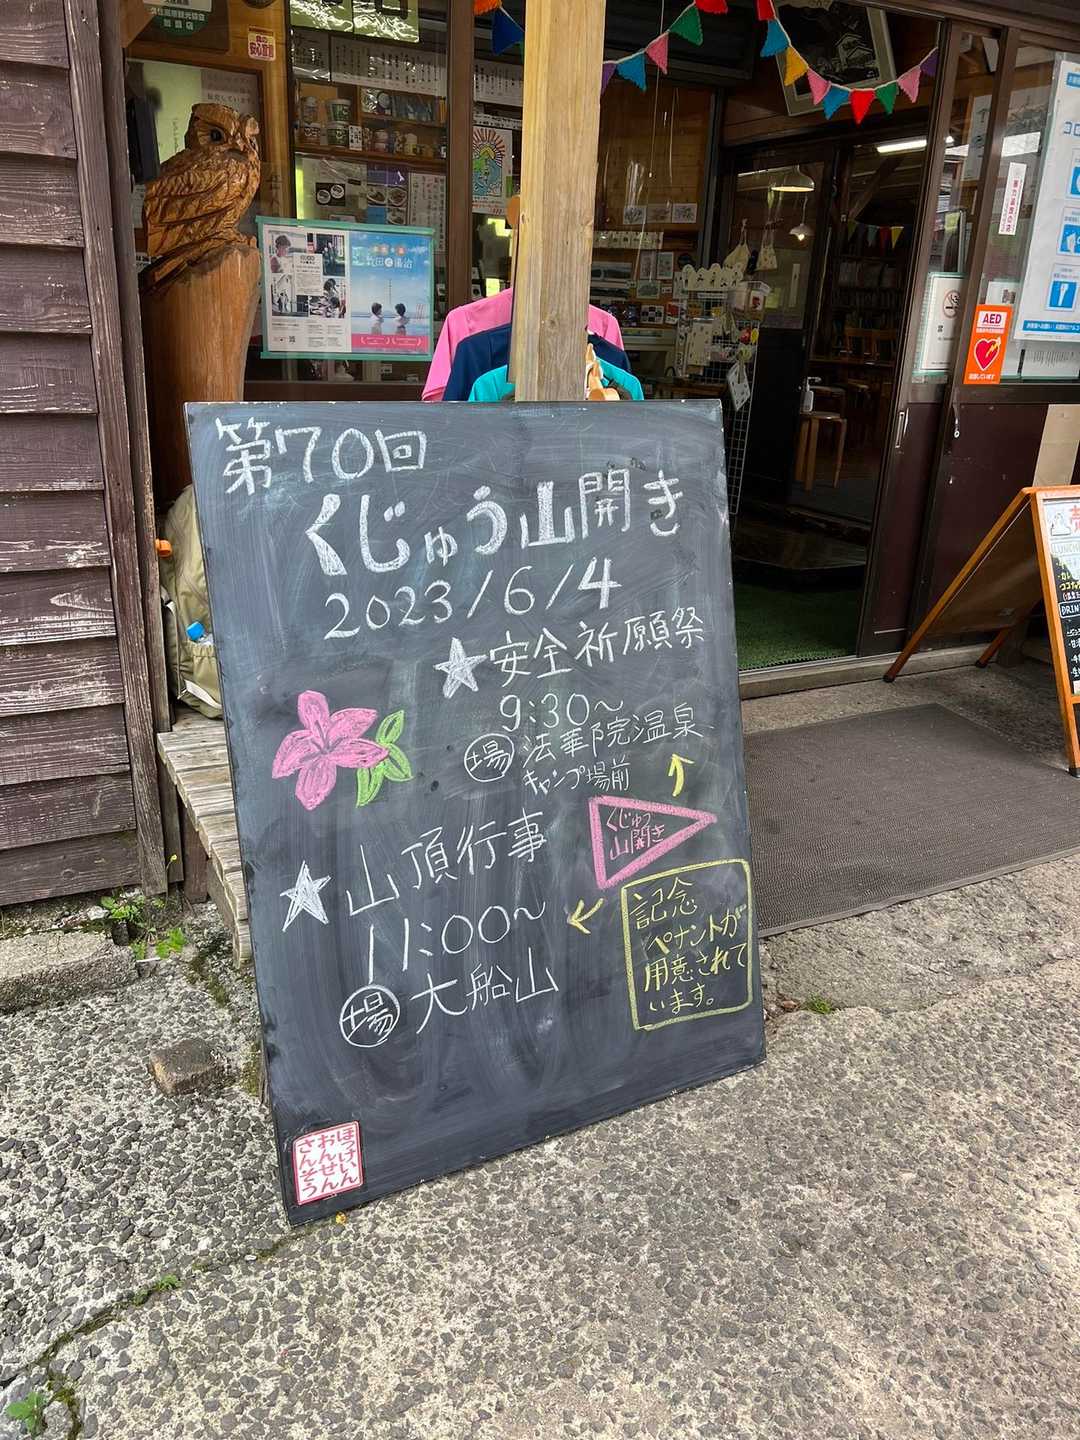 第70回
くじゅう山開き
2023/6/4
★安全祈願祭
9:30〜
場 法華院温泉
キャンプ場前
くじゅう
山開き
★山頂行事
11:00〜
場 大船山
記念
ペナントが
用意されて
います。
ほっけいん
おんせん
さんそう
AED
LUNCH
DRIN